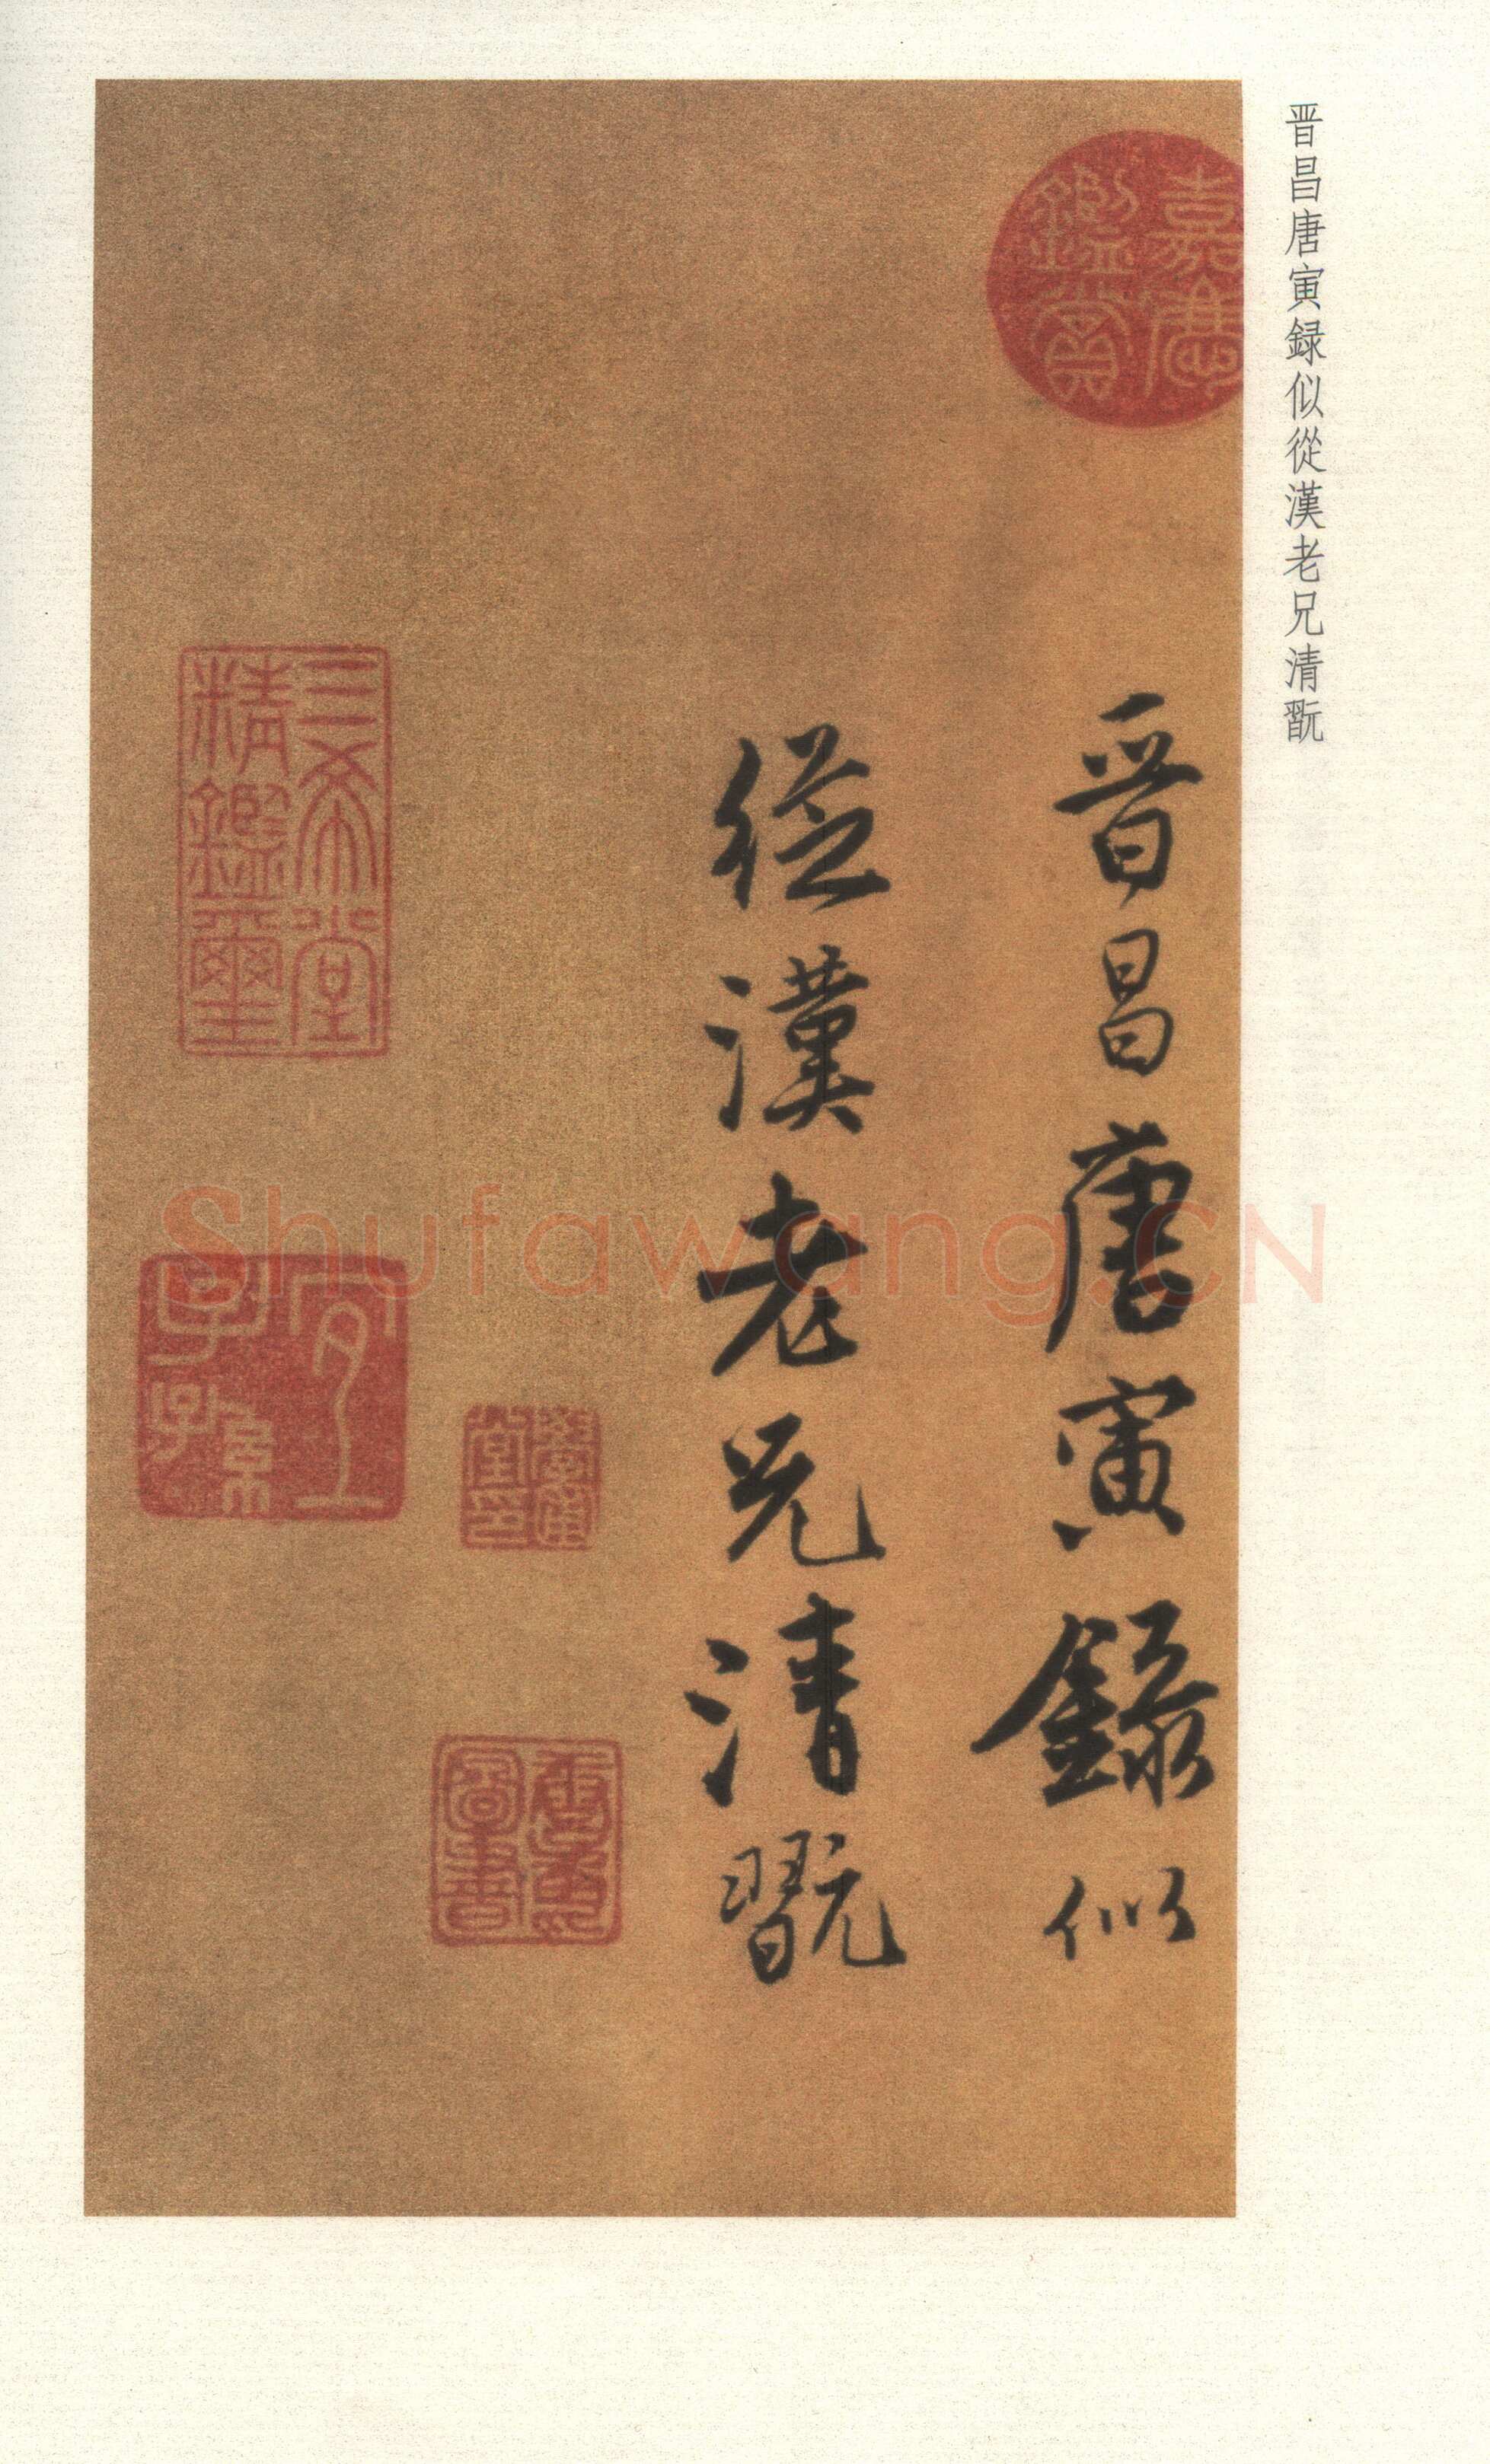 晋昌唐寅録似從漢老兄清翫
嘉慶
鑑賞
晉昌唐寅錄似
從漢老兄清翫
三希堂
精鑑璽
宜
子孫
圖書
Shufawang.CN